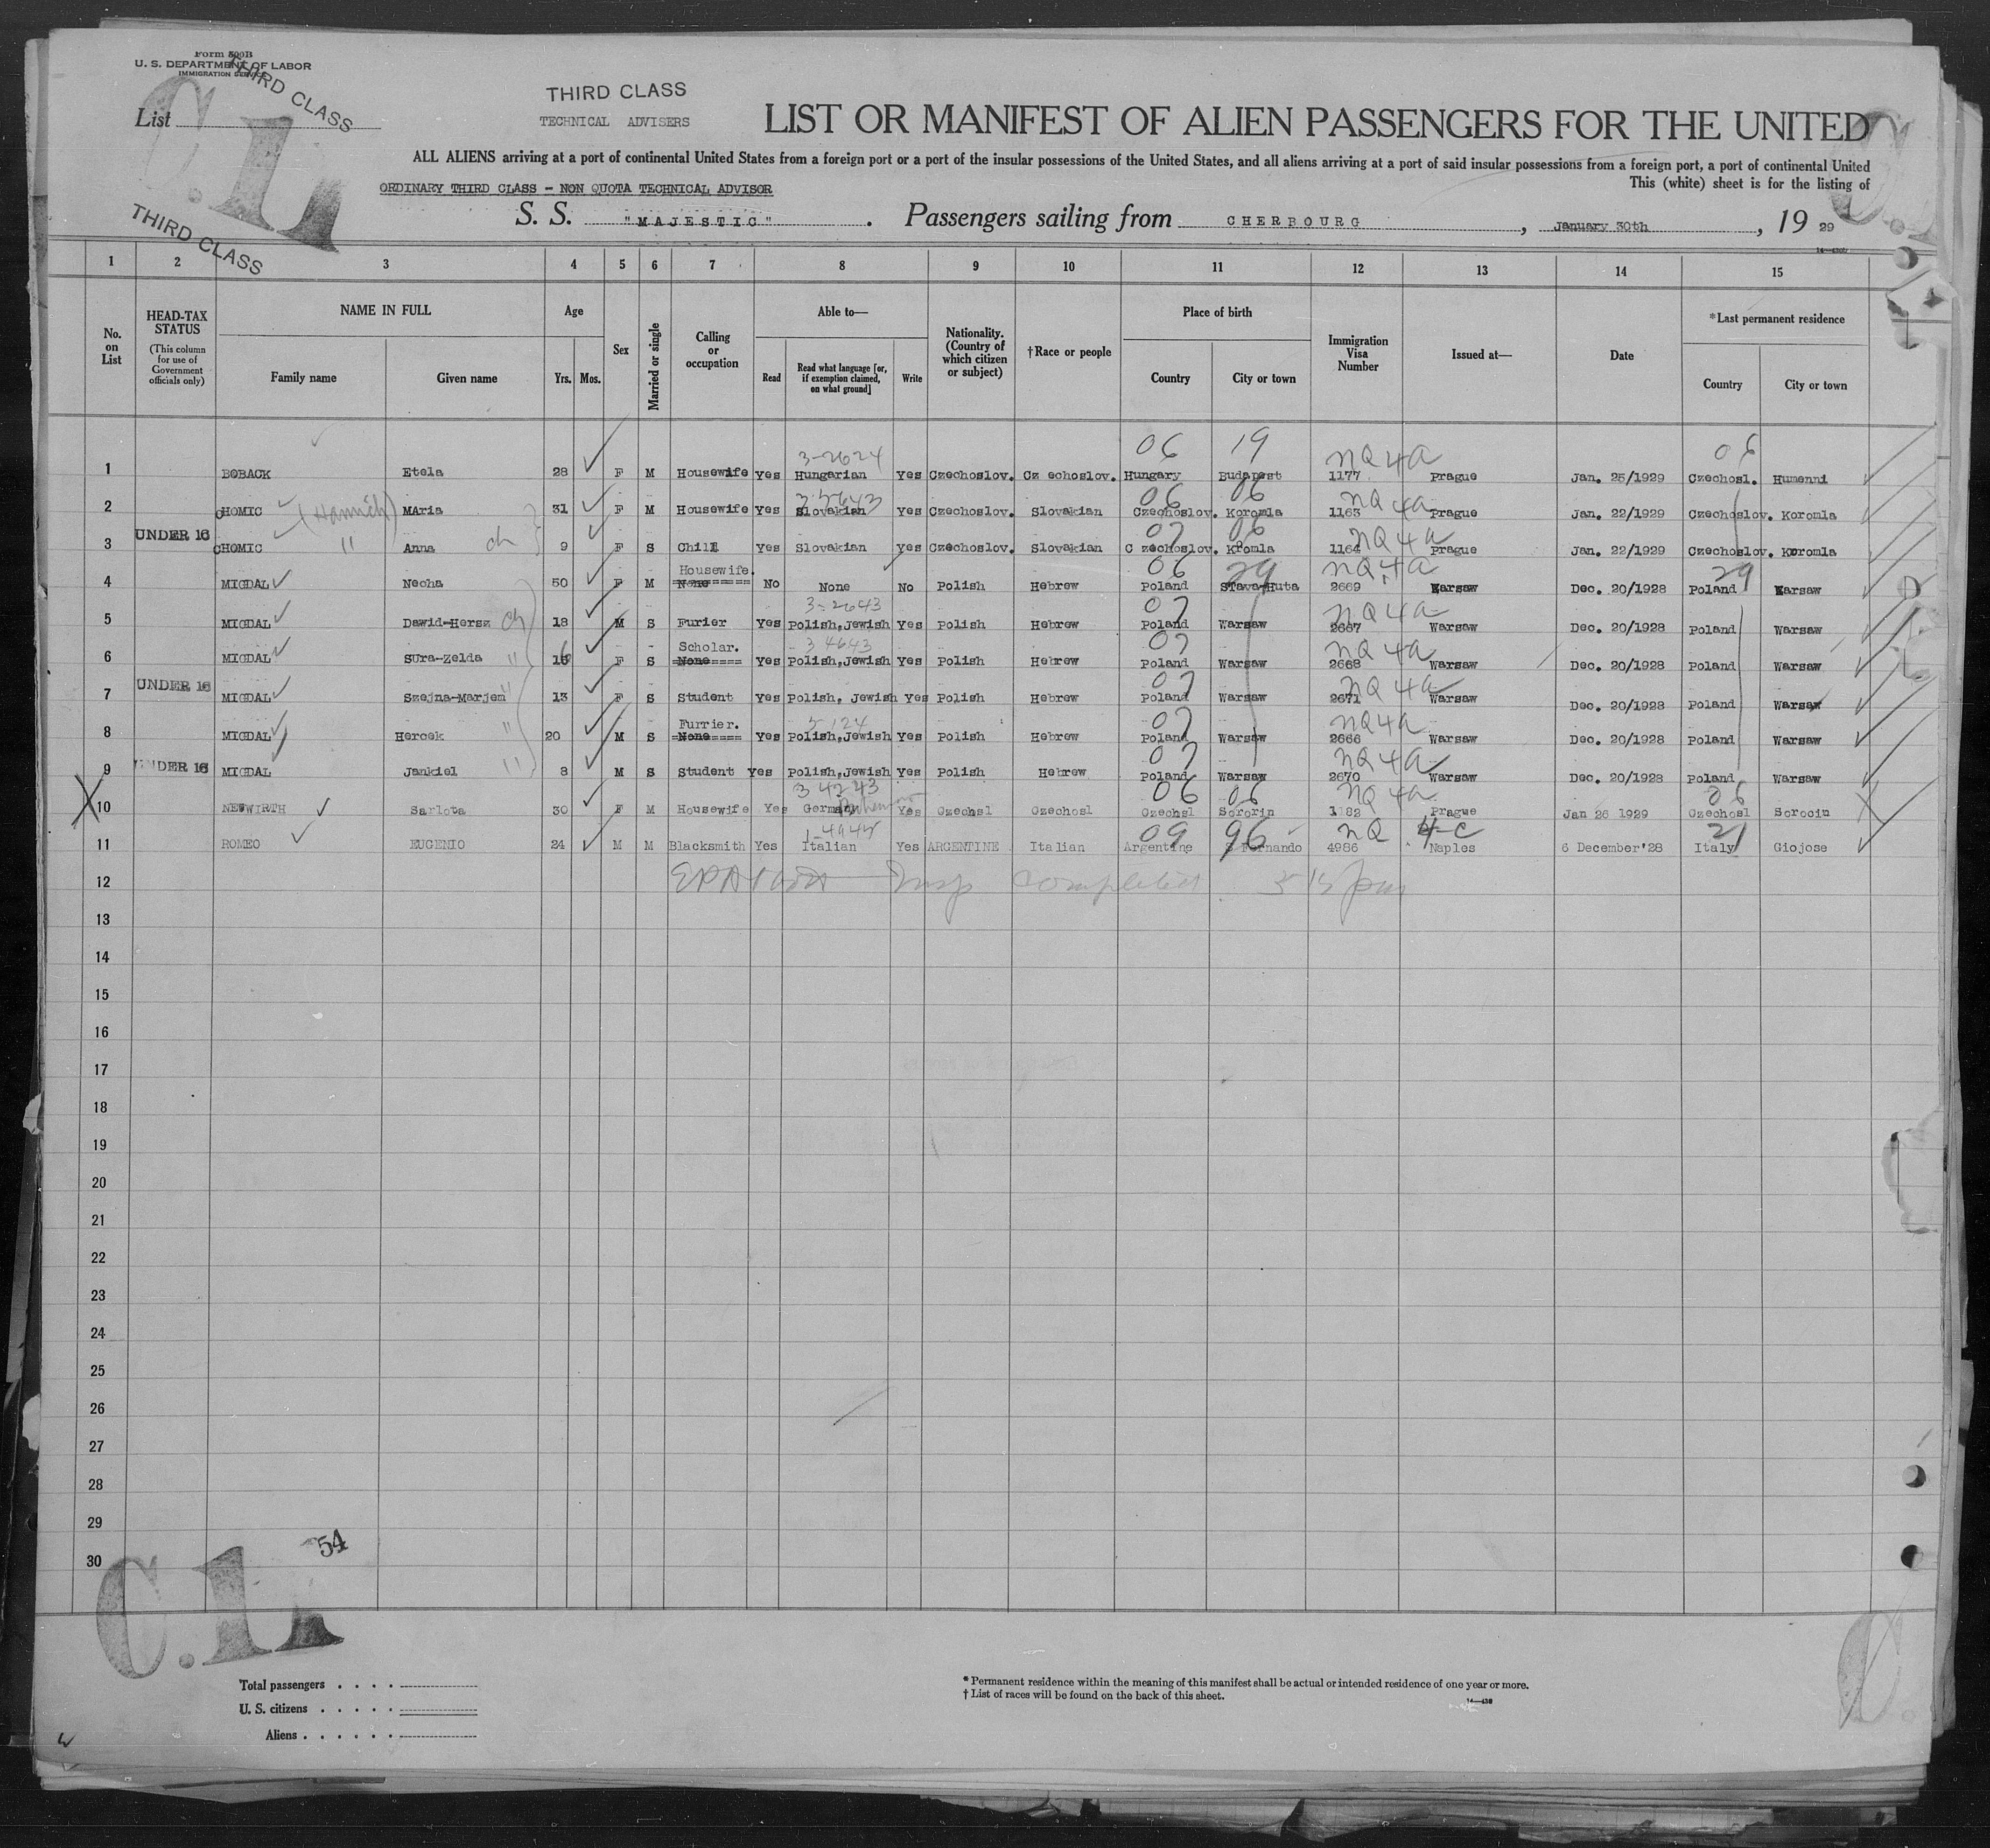 Form 500B
U. S. DEPARTMENT OF LABOR
IMMIGRATION SERVICE
THIRD CLASS
List
THIRD CLASS
TECHNICAL ADVISERS
LIST OR MANIFEST OF ALIEN PASSENGERS FOR THE UNITED
ALL ALIENS arriving at a port of continental United States from a foreign port or a port of the insular possessions of the United States, and all aliens arriving at a port of said insular possessions from a foreign port, a port of continental United
ORDINARY THIRD CLASS - NON QUOTA TECHNICAL ADVISOR
This (white) sheet is for the listing of
S. S. "MAJESTIC" . Passengers sailing from CHERBOURG , January 30th , 19 29
THIRD CLASS
1 2 3 4 5 6 7 8 9 10 11 12 13 14 15
No. on List
HEAD-TAX STATUS (This column for use of Government officials only)
NAME IN FULL Family name Given name
Age Yrs. Mos.
Sex
Married or single
Calling or occupation
Able to— Read Read what language [or, if exemption claimed, on what ground] Write
Nationality. (Country of which citizen or subject)
†Race or people
Place of birth Country City or town
Immigration Visa Number
Issued at—
Date
*Last permanent residence Country City or town
3-2624 06 19 NQ 4a 06
1 BOBACK Etela 28 F M Housewife Yes Hungarian Yes Czechoslov. Cz echoslov. Hungary Budapest 1177 Prague Jan. 25/1929 Czechosl. Humenni
3-5643 06 06 NQ 4a
2 CHOMIC (Hannich) MAria 31 F M Housewife Yes Slovakian Yes Czechoslov. Slovakian Czechoslov. Koromla 1163 Prague Jan. 22/1929 Czechoslov. Koromla
UNDER 16 07 06 NQ 4a
3 CHOMIC " Anna ch 9 F S Chill Yes Slovakian Yes Czechoslov. Slovakian C zechoslov. Kromla 1164 Prague Jan. 22/1929 Czechoslov. Koromla
Housewife. 06 29 NQ 4a 29
4 MIGDAL Necha 50 F M None No None No Polish Hebrew Poland STava-Huta 2669 Warsaw Dec. 20/1928 Poland Warsaw
3-2643 07 NQ 4a
5 MIGDAL Dawid-Hersz ch 18 M S Furier Yes Polish,Jewish Yes Polish Hebrew Poland Warsaw 2667 Warsaw Dec. 20/1928 Poland Warsaw
Scholar. 3 4643 07 NQ 4a
6 MIGDAL SUra-Zelda " 16 F S None Yes Polish,Jewish Yes Polish Hebrew Poland Warsaw 2668 Warsaw Dec. 20/1928 Poland Warsaw
UNDER 16 07 NQ 4a
7 MIGDAL Szejna-Marjem " 13 F S Student Yes Polish, Jewish Yes Polish Hebrew Poland Warsaw 2671 Warsaw Dec. 20/1928 Poland Warsaw
Furrier. 3-124 07 NQ 4a
8 MIGDAL Hercek " 20 M S None Yes Polish,Jewish Yes Polish Hebrew Poland Warsaw 2666 Warsaw Dec. 20/1928 Poland Warsaw
UNDER 16 07 NQ 4a
9 MIGDAL Jankiel " 8 M S Student Yes Polish,Jewish Yes Polish Hebrew Poland Warsaw 2670 Warsaw Dec. 20/1928 Poland Warsaw
3 4243 06 06 NQ 4a 06
10 NEUWIRTH Sarlota 30 F M Housewife Yes German Yes Czechsl Czechosl Czechsl Sororin 1182 Prague Jan 26 1929 Czechosl Sorocin
1-4945 09 96 NQ 4-C 21
11 ROMEO EUGENIO 24 M M Blacksmith Yes Italian Yes ARGENTINE Italian Argentine S Fernando 4986 Naples 6 December'28 Italy Giojose
12 Insp completed 5 15 pm
13
14
15
16
17
18
19
20
21
22
23
24
25
26
27
28
29
30
54
C.11
Total passengers
U. S. citizens
Aliens
* Permanent residence within the meaning of this manifest shall be actual or intended residence of one year or more.
† List of races will be found on the back of this sheet.